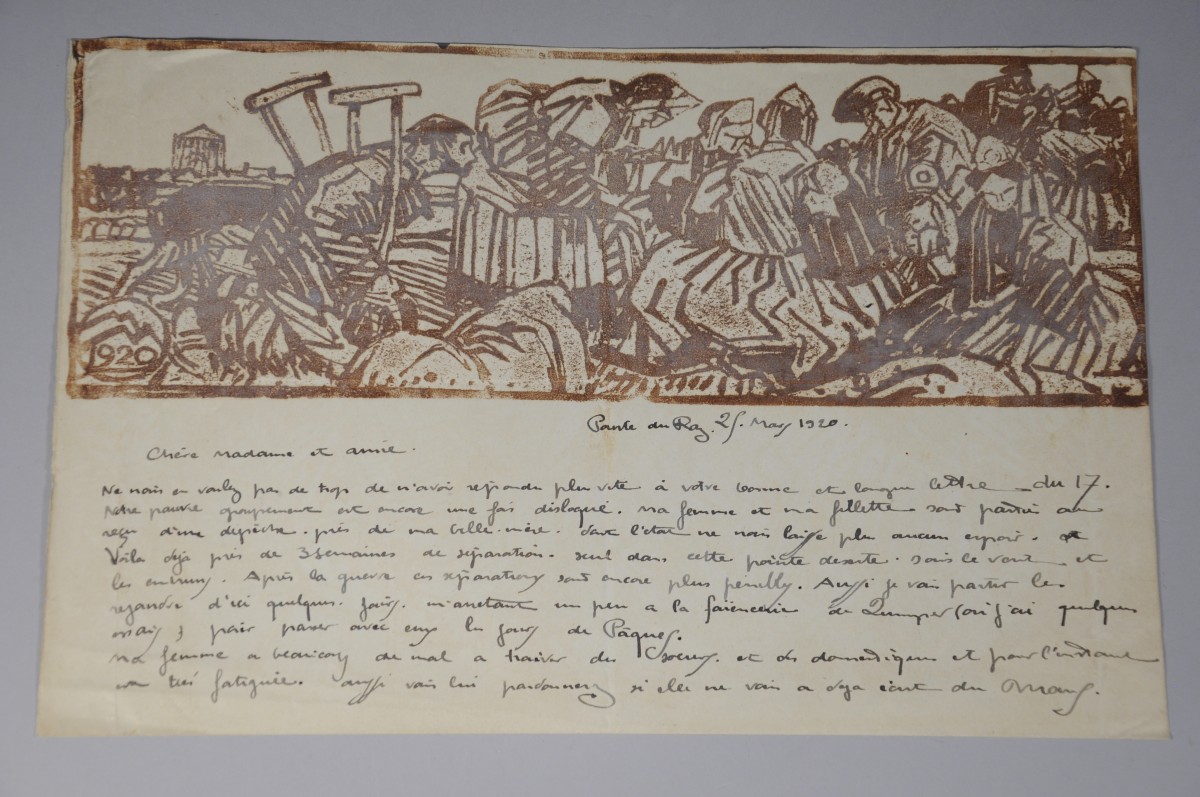 1920
Pointe du Raz. 25. Mars 1920.
Chère Madame et amie.
Ne nous en voulez pas de trop de n'avoir répondu plus vite à votre bonne et longue lettre du 17.
Notre pauvre groupement est encore une fois disloqué. Ma femme et ma fillette sont parties au
reçu d'une dépêche. près de ma belle-mère. dont l'état ne nous laisse plus aucun espoir.
Voila deja près de 3 semaines de séparation. seul dans cette pointe deserte. sous le vent et
les embruns. Après la guerre ces séparations sont encore plus pénibles. Aussi je vais partir les
rejoindre d'ici quelques jours. m'arretant un peu a la faïencerie de Quimper (où j'ai quelques
essais) pour passer avec eux les jours de Pâques.
Ma femme a beaucoup de mal a trouver des soeurs et des domestiques et pour l'instant
est très fatiguée. aussi vous lui pardonnerez si elle ne vous a deja écrit du